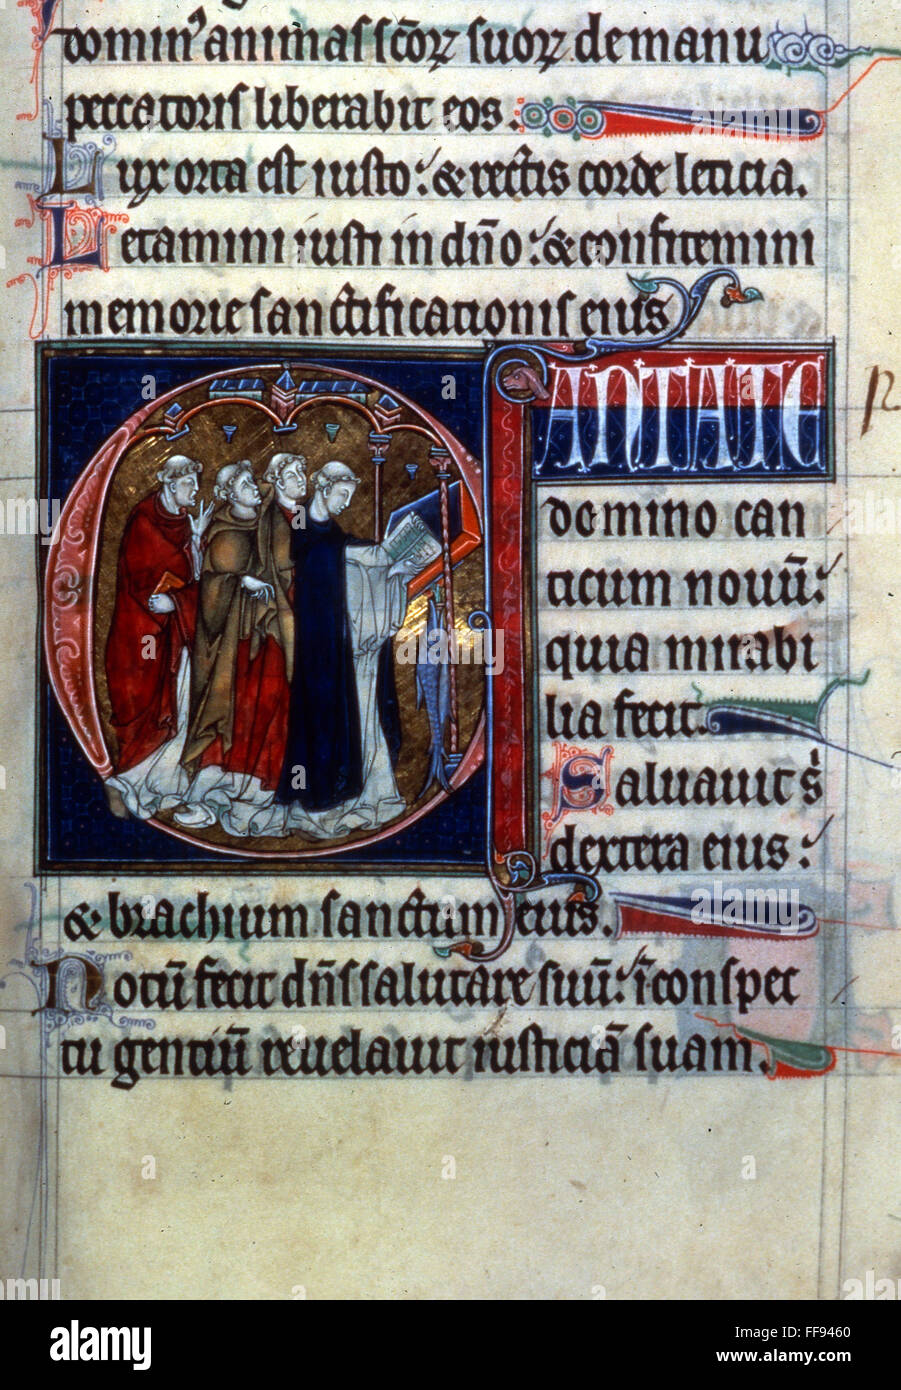 domin' animas scorꝝ suorꝝ de manu
peccatoris liberabit eos.
Lux orta est iusto: & rectis corde leticia.
Letamini iusti in dño: & confitemini
memorie sanctificationis eius
CANTATE
domino can
ticum novū:
quia mirabi
lia fecit.
Salvavit s̄
dextera eius:
& brachium sanctum eius.
Notū fecit dñs salutare suū: ī conspec
tu gentiū revelavit iusticiā suam.
alamy
Image ID: FF9460
www.alamy.com